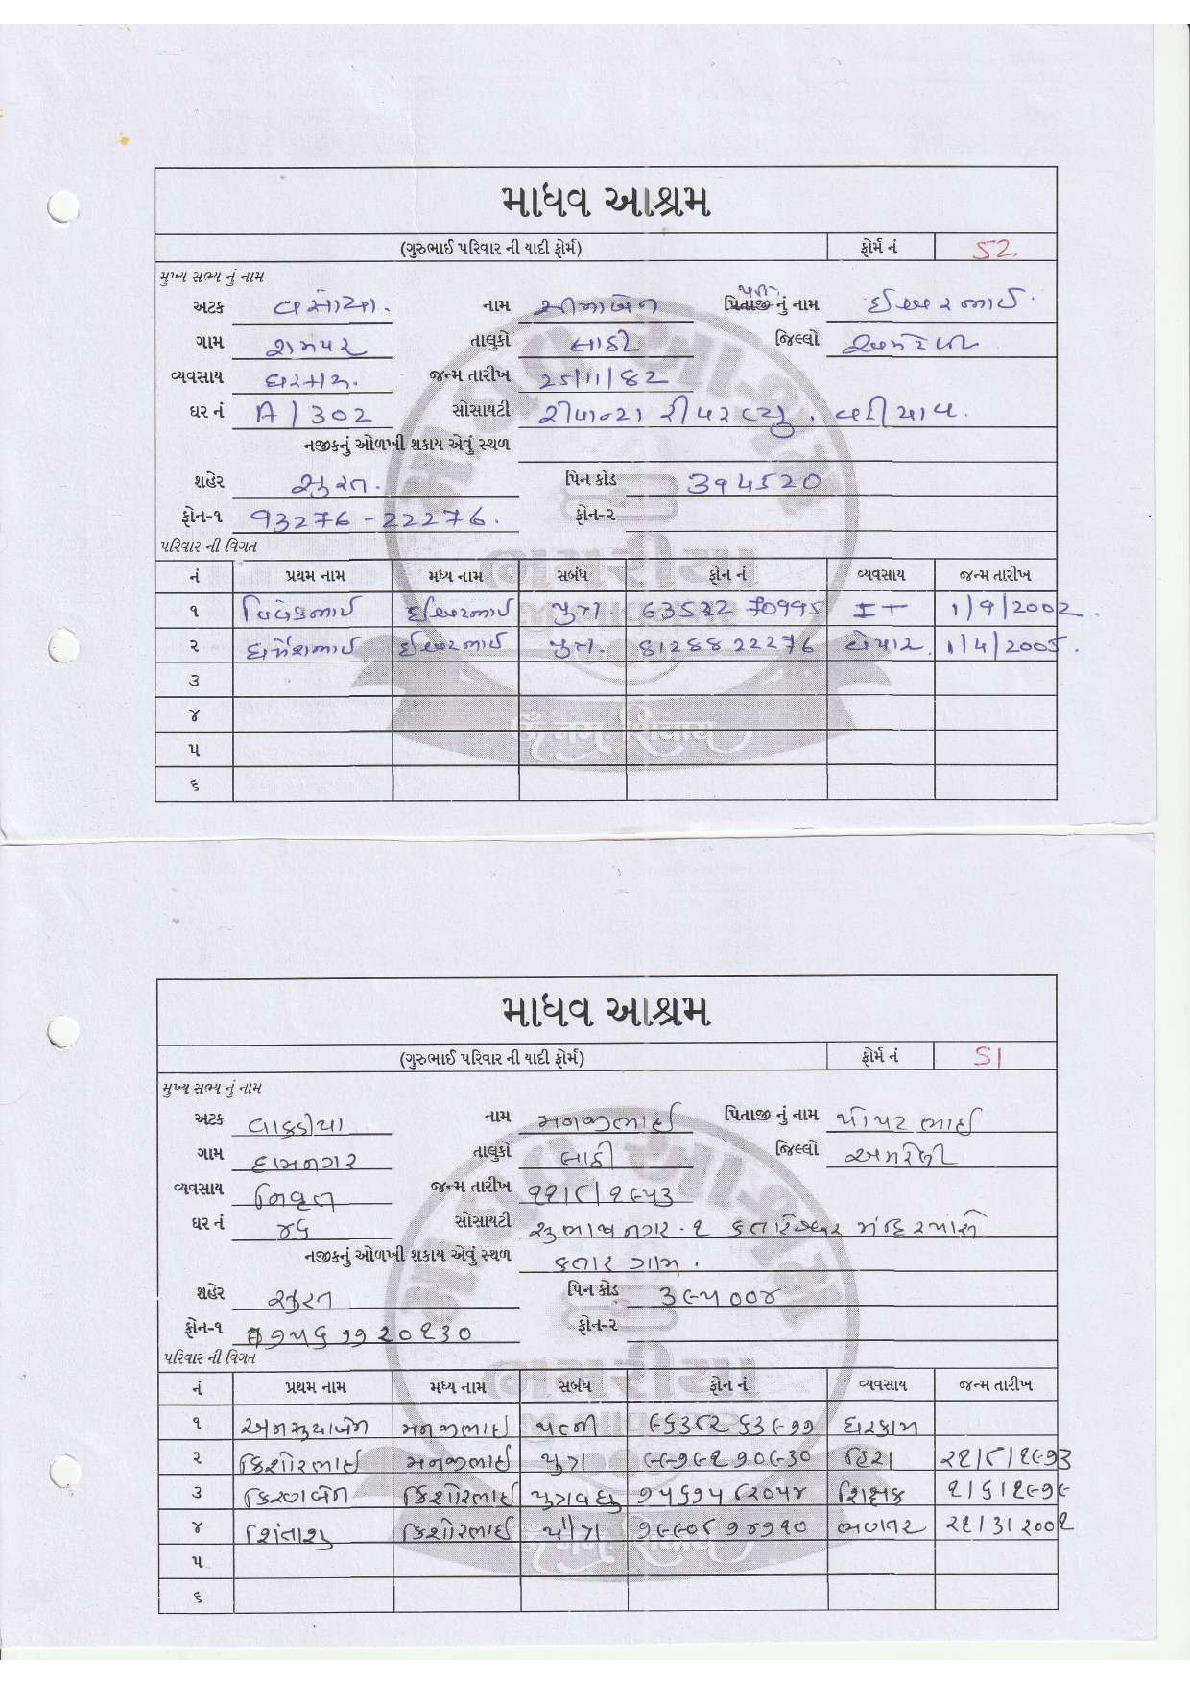 માધવ આશ્રમ
(ગુરુભાઈ પરિવાર ની યાદી ફોર્મ) ફોર્મ નં 52
મુખ્ય સભ્ય નું નામ
અટક વસોયા. નામ સીમાબેન પતિ પિતાજી નું નામ ઈશ્વરભાઈ.
ગામ રામપર તાલુકો લાઠી જિલ્લો અમરેલી
વ્યવસાય ઘરકામ. જન્મ તારીખ 25/11/82
ઘર નં A/302 સોસાયટી રીવરવ્યુ. વરીયાવ.
નજીકનું ઓળખી શકાય એવું સ્થળ
શહેર સુરત. પિન કોડ 394520
ફોન-૧ 93276-22276. ફોન-૨
પરિવાર ની વિગત
નં પ્રથમ નામ મધ્ય નામ સબંધ ફોન નં વ્યવસાય જન્મ તારીખ
૧ વિવેકભાઈ ઈશ્વરભાઈ પુત્ર 63522 70995 IT 1/9/2002.
૨ ધર્મેશભાઈ ઈશ્વરભાઈ પુત્ર. 8128822276 વેપાર. 1/4/2005.
૩
૪
૫
૬
માધવ આશ્રમ
(ગુરુભાઈ પરિવાર ની યાદી ફોર્મ) ફોર્મ નં 51
મુખ્ય સભ્ય નું નામ
અટક વાકડીયા નામ મનજીભાઈ પિતાજી નું નામ પોપટભાઈ
ગામ દામનગર તાલુકો લાઠી જિલ્લો અમરેલી
વ્યવસાય નિવૃત જન્મ તારીખ ૧૧/૮/૧૯૫૩
ઘર નં ૪૬ સોસાયટી સુભાષનગર-૧ કતારેશ્વર મંદિર પાસે
નજીકનું ઓળખી શકાય એવું સ્થળ કતારગામ.
શહેર સુરત પિન કોડ ૩૯૫૦૦૪
ફોન-૧ ૭૫૬૭૭૨૦૧૩૦ ફોન-૨
પરિવાર ની વિગત
નં પ્રથમ નામ મધ્ય નામ સબંધ ફોન નં વ્યવસાય જન્મ તારીખ
૧ અનસુયાબેન મનજીભાઈ પત્ની ૯૬૩૮૨૬૩૯૭૭ ઘરકામ
૨ કિશોરભાઈ મનજીભાઈ પુત્ર ૯૯૭૯૧૭૦૯૩૦ હિરા ૨૧/૮/૧૯૭૩
૩ કિરણબેન કિશોરભાઈ પુત્રવધુ ૭૫૬૭૫૮૨૦૫૪ શિક્ષક ૧/૬/૧૯૭૯
૪ કિશોરભાઈ પૌત્ર ૭૯૯૦૮૭૪૭૧૦ ભણતર ૨૧/૩/૨૦૦૧
૫
૬